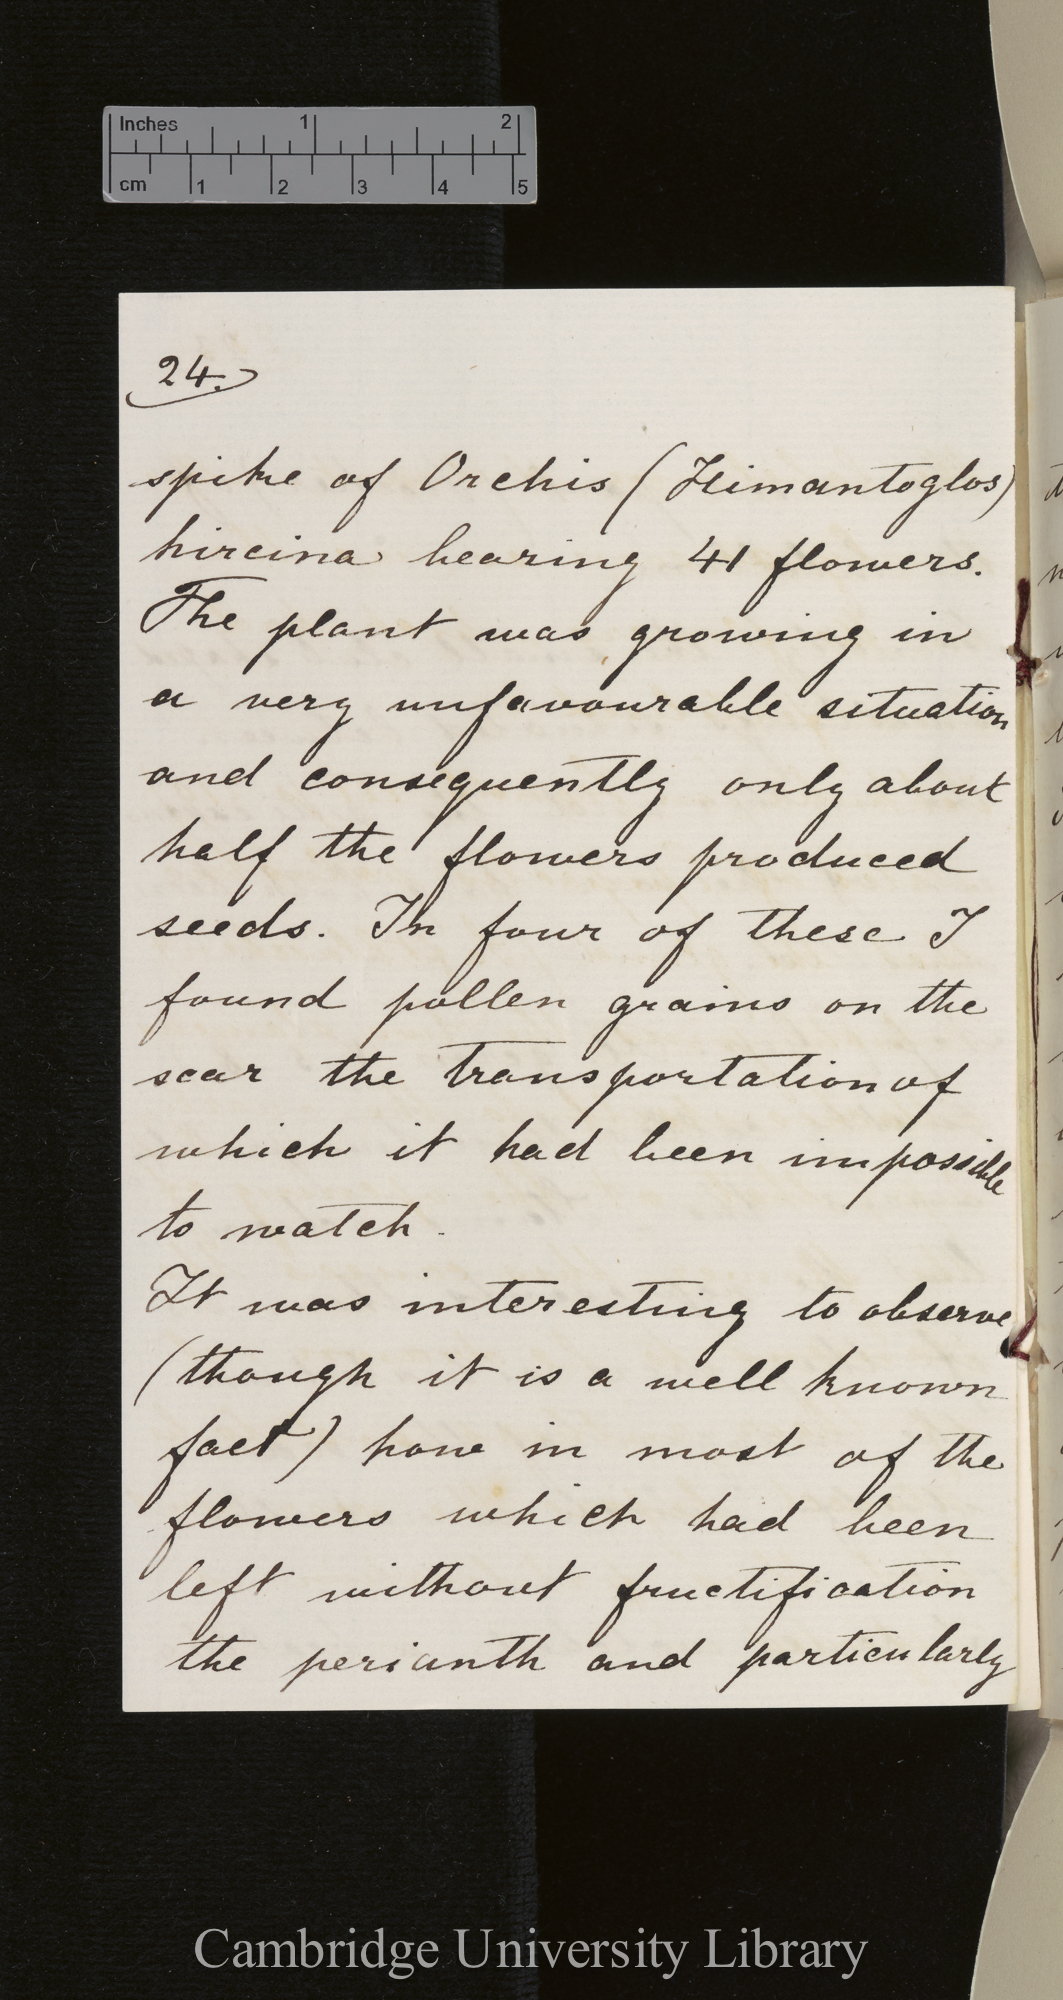 Inches 1 2
cm 1 2 3 4 5
24.
spike of Orchis (Himantoglos)
hircina bearing 41 flowers.
The plant was growing in
a very unfavourable situation
and consequently only about
half the flowers produced
seeds. In four of these I
found pollen grains on the
scar the transportation of
which it had been impossible
to watch.
It was interesting to observe
(though it is a well known
fact) how in most of the
flowers which had been
left without fructification
the perianth and particularly
Cambridge University Library